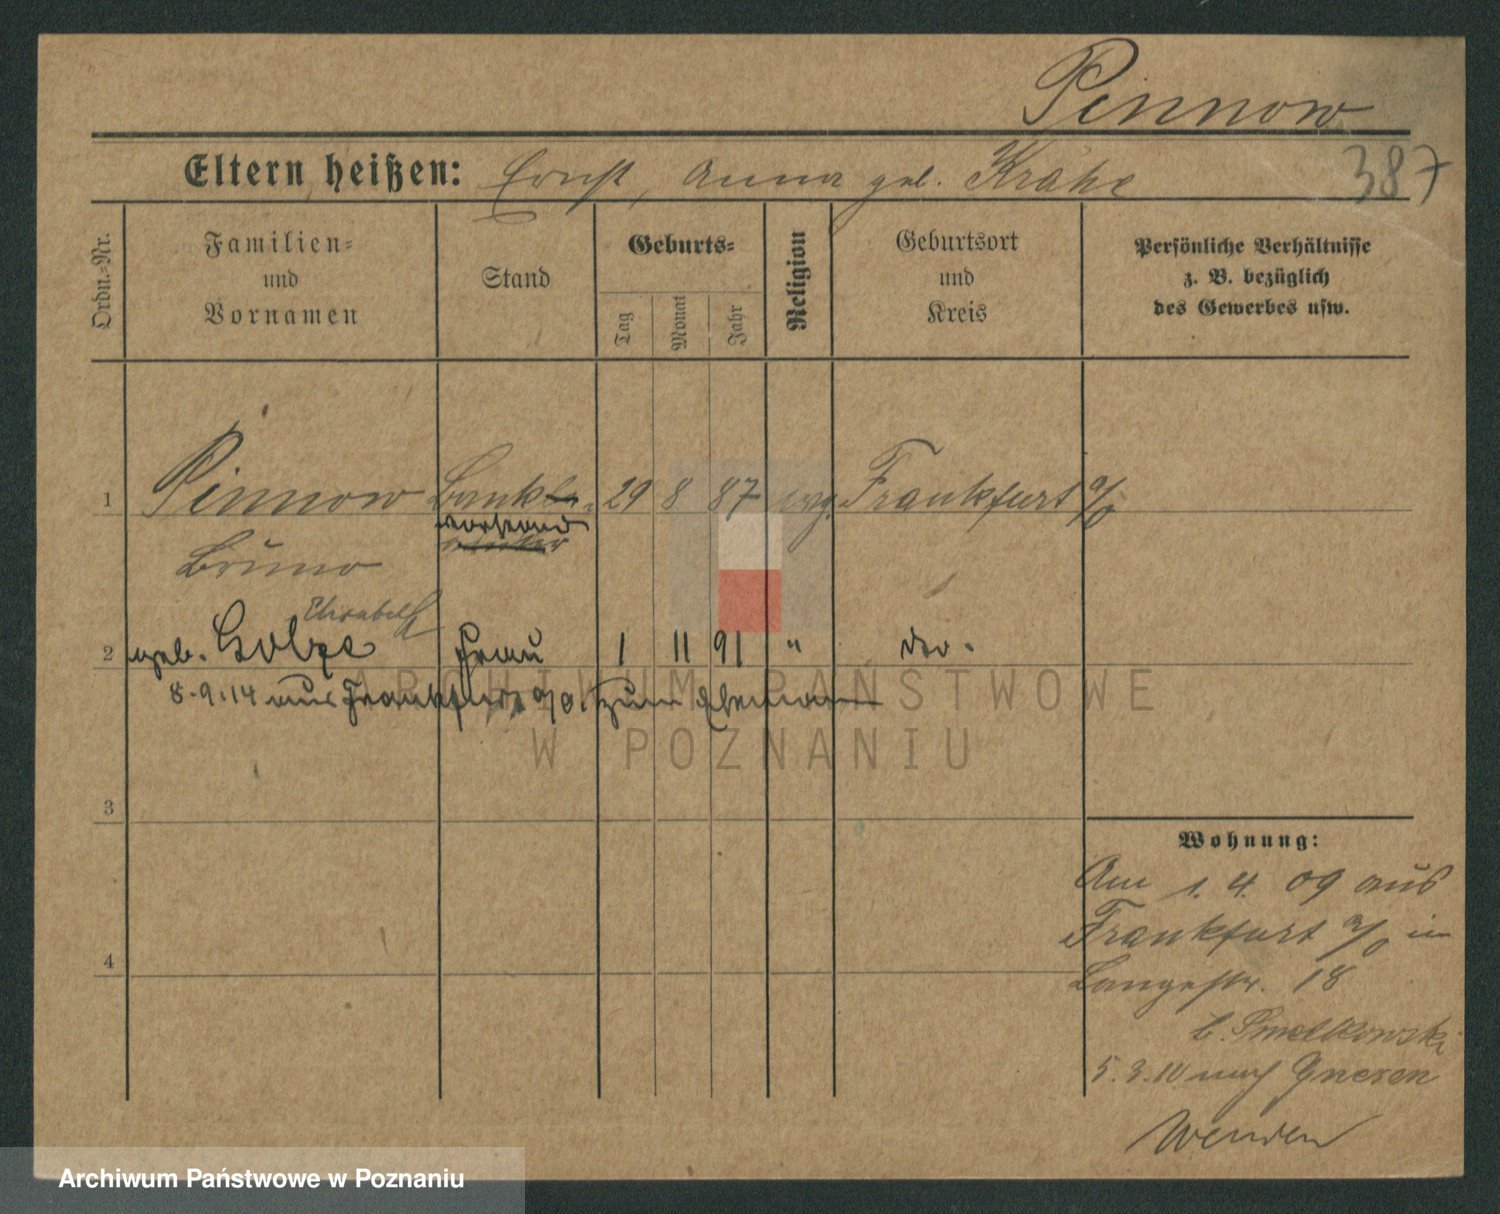 Pinnow
Eltern heißen: Ernst, Anna geb. Krähe
387
Ordn.=Nr.
Familien=
und
Vornamen
Stand
Geburts=
Tag
Monat
Jahr
Religion
Geburtsort
und
Kreis
Persönliche Verhältnisse
z. B. bezüglich
des Gewerbes usw.
1 Pinnow Bank 29 8 87 evg. Frankfurt a/O
vorstand
Bruno
Elisabeth
2 geb. Frau 1 11 91 " do.
8.9.14 aus Frankfurt a/O. zum Ehemann
ARCHIWUM PAŃSTWOWE
W POZNANIU
3
4
Wohnung:
Am 1. 4. 09 aus
Frankfurt a/O in
Langestr. 18
b. Smolkowski
5.3.10 nach Gnesen
Wenden
Archiwum Państwowe w Poznaniu